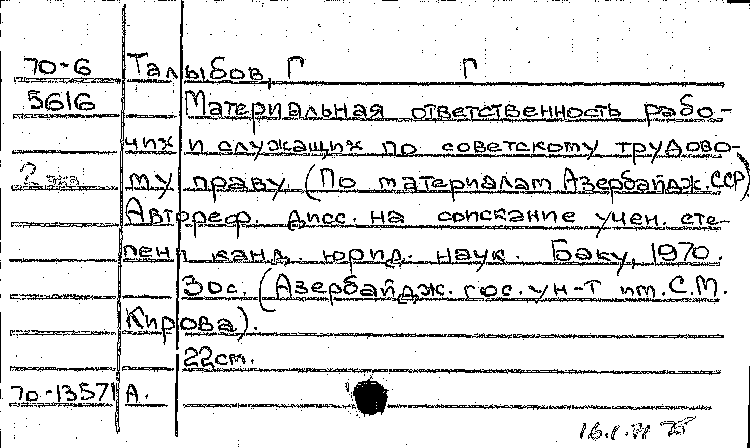 70-6 Талыбов, Г Г
5616 Материальная ответственность рабо-
чих и служащих по советскому трудово-
2 экз му праву. (По материалам Азербайдж. ССР)
Автореф. дисс. на соискание учен. сте-
пени канд. юрид. наук. Баку, 1970.
30с. (Азербайдж. гос. ун-т им. С.М.
Кирова).
22см.
70-13571 А.
16.1.71